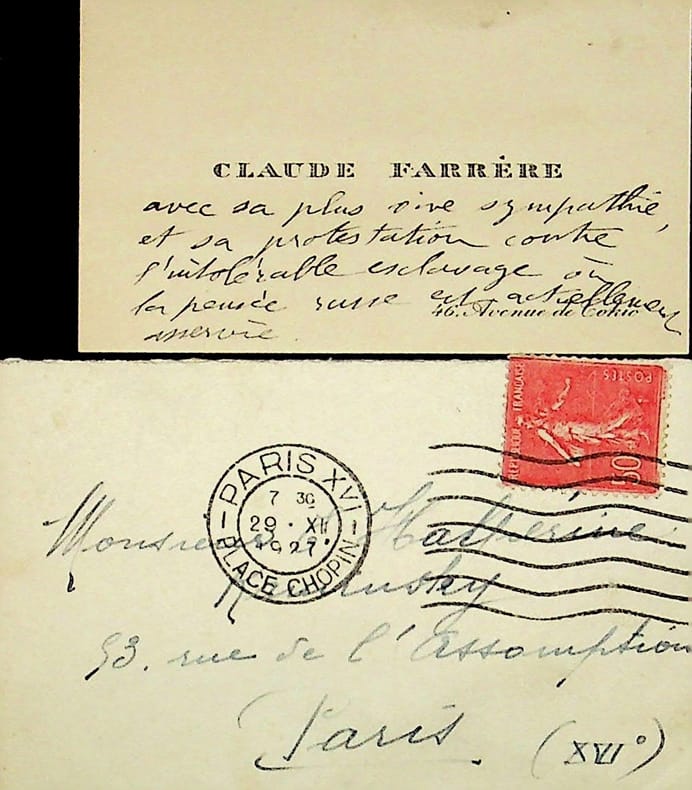 CLAUDE FARRÈRE
avec sa plus vive sympathie,
et sa protestation contre
l'intolérable esclavage où
la pensée russe est actuellement
asservie.
46. Avenue de Tokio
POSTES
REPUBLIQUE FRANÇAISE
50
PARIS XVI
7 30
29 · XII
1927
PLACE CHOPIN
Monsieur Katherine
53. rue de l'Assomption
Paris. (XVI°)